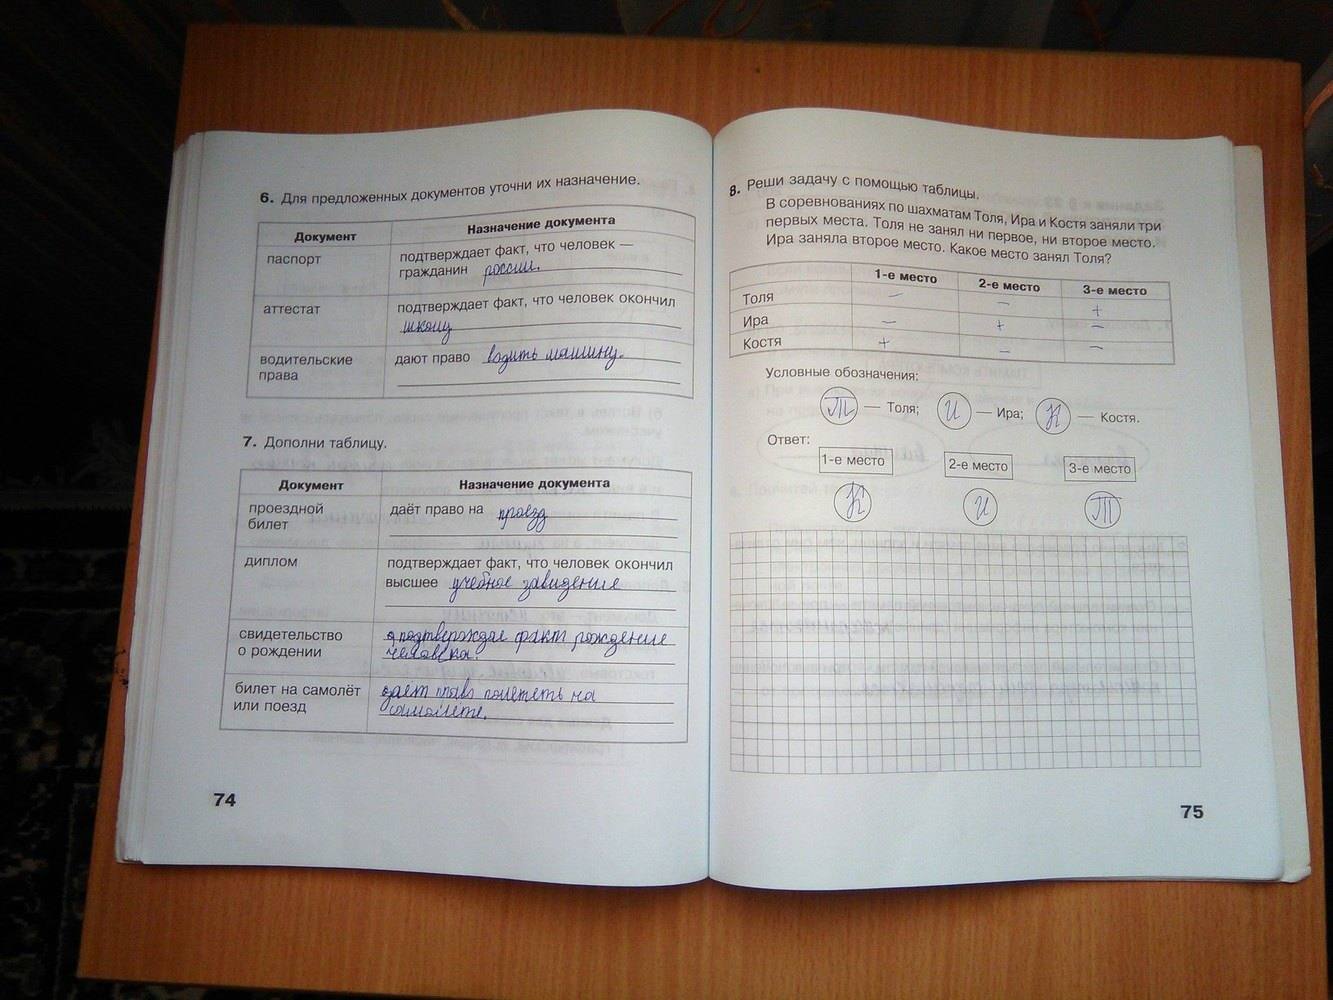 6. Для предложенных документов уточни их назначение.
Документ
Назначение документа
паспорт
подтверждает факт, что человек —
гражданин россии.
аттестат
подтверждает факт, что человек окончил
школу
водительские
права
дают право водить машину.
7. Дополни таблицу.
Документ
Назначение документа
проездной
билет
даёт право на проезд
диплом
подтверждает факт, что человек окончил
высшее учебное завидение
свидетельство
о рождении
подтверждае факт рождение
человека.
билет на самолёт
или поезд
даёт право полететь на
самолёте.
74
8. Реши задачу с помощью таблицы.
В соревнованиях по шахматам Толя, Ира и Костя заняли три
первых места. Толя не занял ни первое, ни второе место.
Ира заняла второе место. Какое место занял Толя?
1-е место 2-е место 3-е место
Толя – – +
Ира – + –
Костя + – –
Условные обозначения:
Т — Толя; И — Ира; К — Костя.
Ответ:
1-е место 2-е место 3-е место
К И Т
75